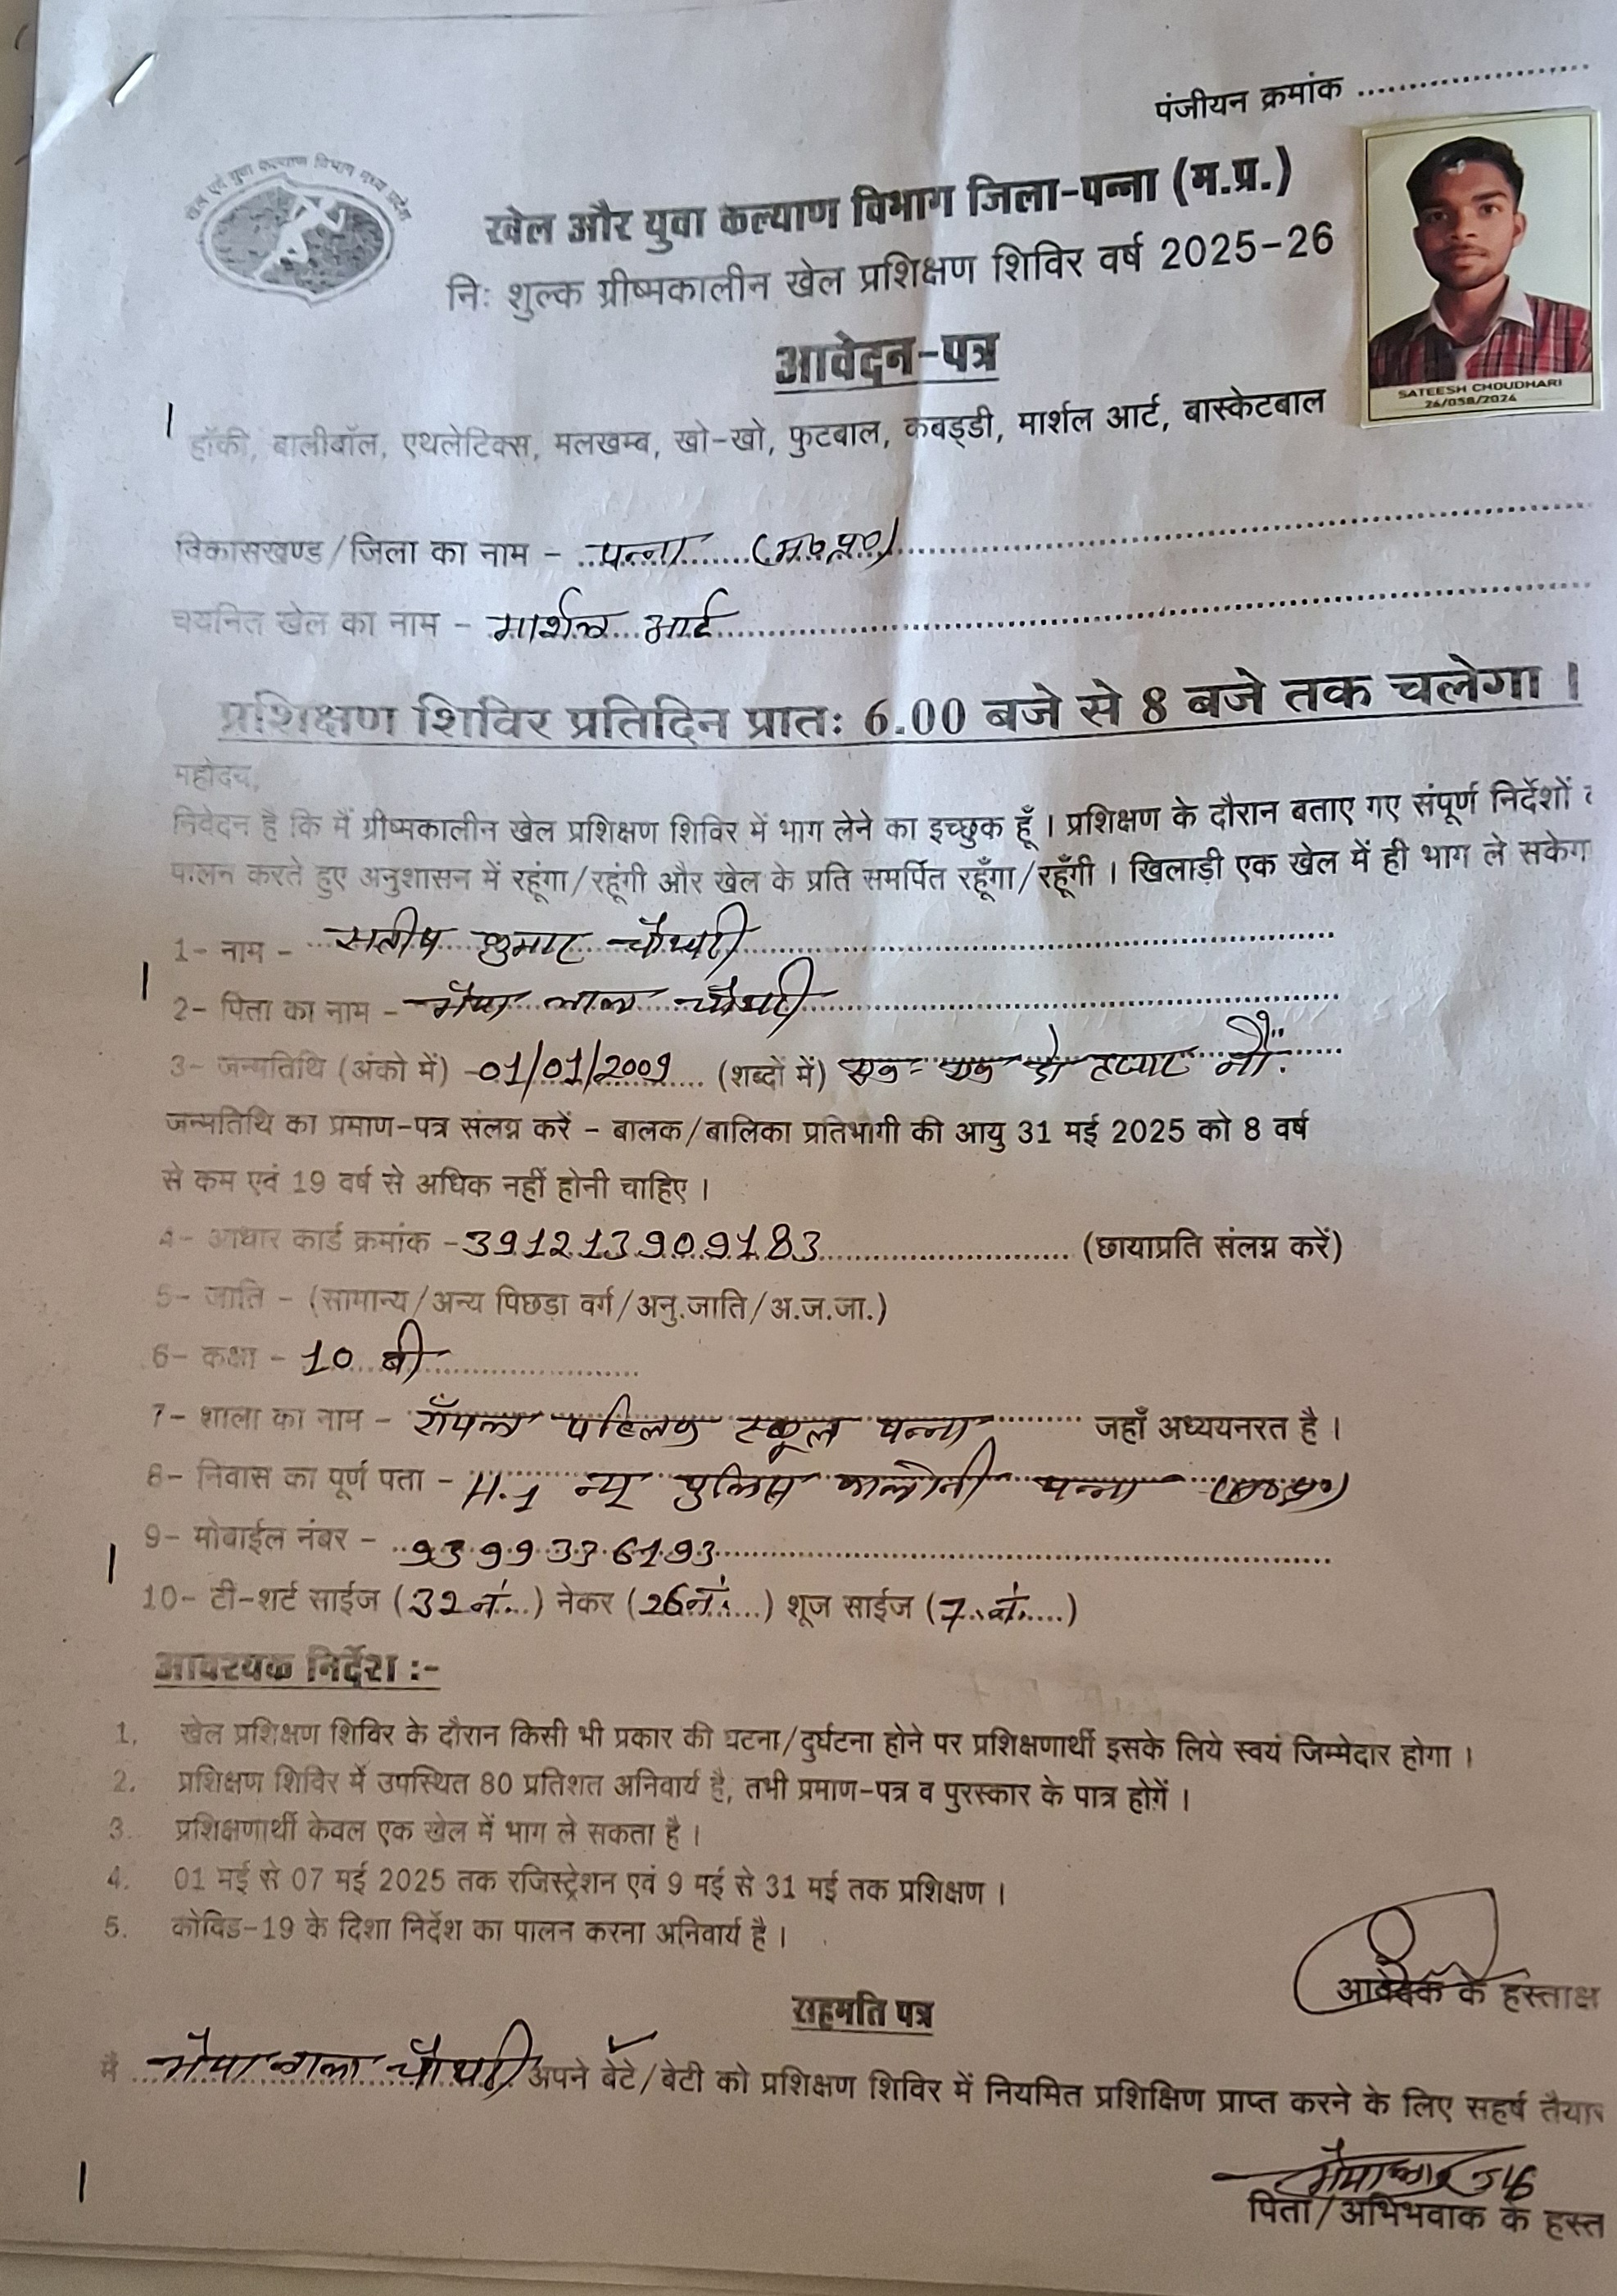 पंजीयन क्रमांक ........................
खेल एवं युवा कल्याण विभाग मध्य प्रदेश
खेल और युवा कल्याण विभाग जिला-पन्ना (म.प्र.)
निः शुल्क ग्रीष्मकालीन खेल प्रशिक्षण शिविर वर्ष 2025-26
आवेदन-पत्र
SATEESH CHOUDHARI
26/058/2024
हॉकी, बालीबॉल, एथलेटिक्स, मलखम्ब, खो-खो, फुटबाल, कबड्डी, मार्शल आर्ट, बास्केटबाल
विकासखण्ड/जिला का नाम - पन्ना (म०प्र०)
चयनित खेल का नाम - मार्शल आर्ट
प्रशिक्षण शिविर प्रतिदिन प्रातः 6.00 बजे से 8 बजे तक चलेगा ।
महोदय,
निवेदन है कि मैं ग्रीष्मकालीन खेल प्रशिक्षण शिविर में भाग लेने का इच्छुक हूँ । प्रशिक्षण के दौरान बताए गए संपूर्ण निर्देशों
पालन करते हुए अनुशासन में रहूंगा/रहूंगी और खेल के प्रति समर्पित रहूँगा/रहूँगी । खिलाड़ी एक खेल में ही भाग ले सकेगा
1- नाम - सतीष कुमार चौधरी
2- पिता का नाम - लाल चौधरी
3- जन्मतिथि (अंको में) - 01/01/2009 (शब्दों में) एक- एक दो हजार नौ.
जन्मतिथि का प्रमाण-पत्र संलग्न करें - बालक/बालिका प्रतिभागी की आयु 31 मई 2025 को 8 वर्ष
से कम एवं 19 वर्ष से अधिक नहीं होनी चाहिए ।
4- आधार कार्ड क्रमांक - 391213909183 (छायाप्रति संलग्न करें)
5- जाति - (सामान्य/अन्य पिछड़ा वर्ग/अनु.जाति/अ.ज.जा.)
6- कक्षा - 10 बी
7- शाला का नाम - रॉयल पब्लिक स्कूल पन्ना जहाँ अध्ययनरत है ।
8- निवास का पूर्ण पता - H.1 न्यू पुलिस कालोनी पन्ना (म०प्र०)
9- मोबाईल नंबर - 9399336193
10- टी-शर्ट साईज (32 नं.) नेकर (26 नं.) शूज साईज (7 नं.)
आवश्यक निर्देश :-
1. खेल प्रशिक्षण शिविर के दौरान किसी भी प्रकार की घटना/दुर्घटना होने पर प्रशिक्षणार्थी इसके लिये स्वयं जिम्मेदार होगा ।
2. प्रशिक्षण शिविर में उपस्थित 80 प्रतिशत अनिवार्य है, तभी प्रमाण-पत्र व पुरस्कार के पात्र होगें ।
3. प्रशिक्षणार्थी केवल एक खेल में भाग ले सकता है ।
4. 01 मई से 07 मई 2025 तक रजिस्ट्रेशन एवं 9 मई से 31 मई तक प्रशिक्षण ।
5. कोविड-19 के दिशा निर्देश का पालन करना अनिवार्य है ।
आवेदक के हस्ताक्ष
सहमति पत्र
मै चौधरी अपने बेटे/बेटी को प्रशिक्षण शिविर में नियमित प्रशिक्षिण प्राप्त करने के लिए सहर्ष तैयार
पिता/अभिभवाक के हस्त